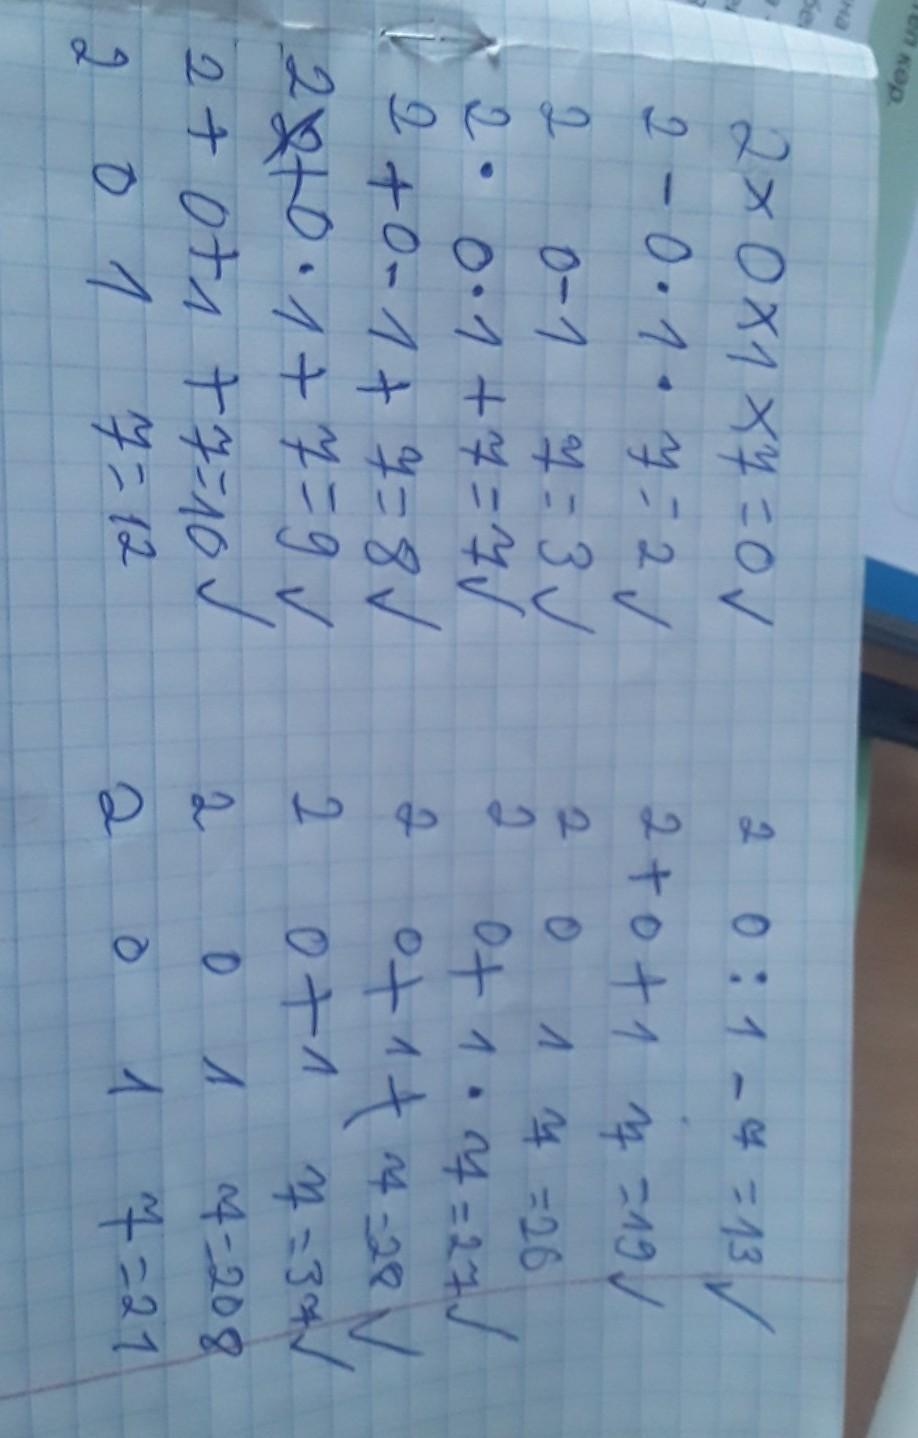 2×0×1×7=0✓
2-0·1·7=2✓
2 0-1 7=3✓
2·0·1+7=7✓
2+0-1+7=8✓
2+0·1+7=9✓
2+0+1+7=10✓
2 0 1 7=12
2 0:1-7=13✓
2+0+1 7=19✓
2 0 1 7=26
2 0+1·7=27✓
2 0+1+7=28✓
2 0+1 7=37✓
2 0 1 7=208
2 0 1 7=21